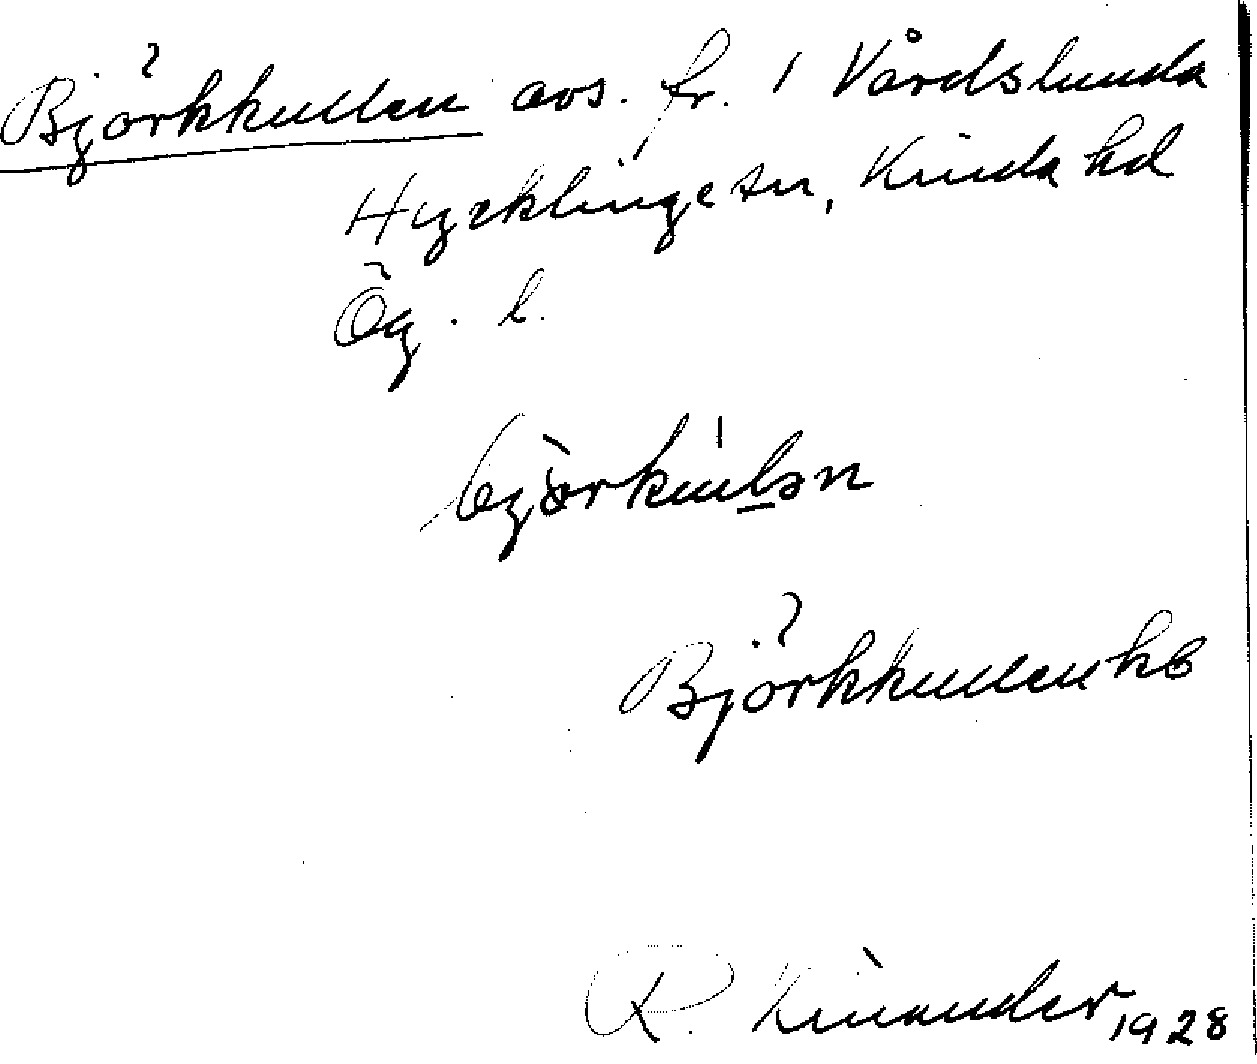 Björkkullen avs. fr. 1 Vårdslunda
Hycklinge sn, Kinda hd
Ög. l.
bjòrkúlən
Björkkullen hb
R. Kinander 1928